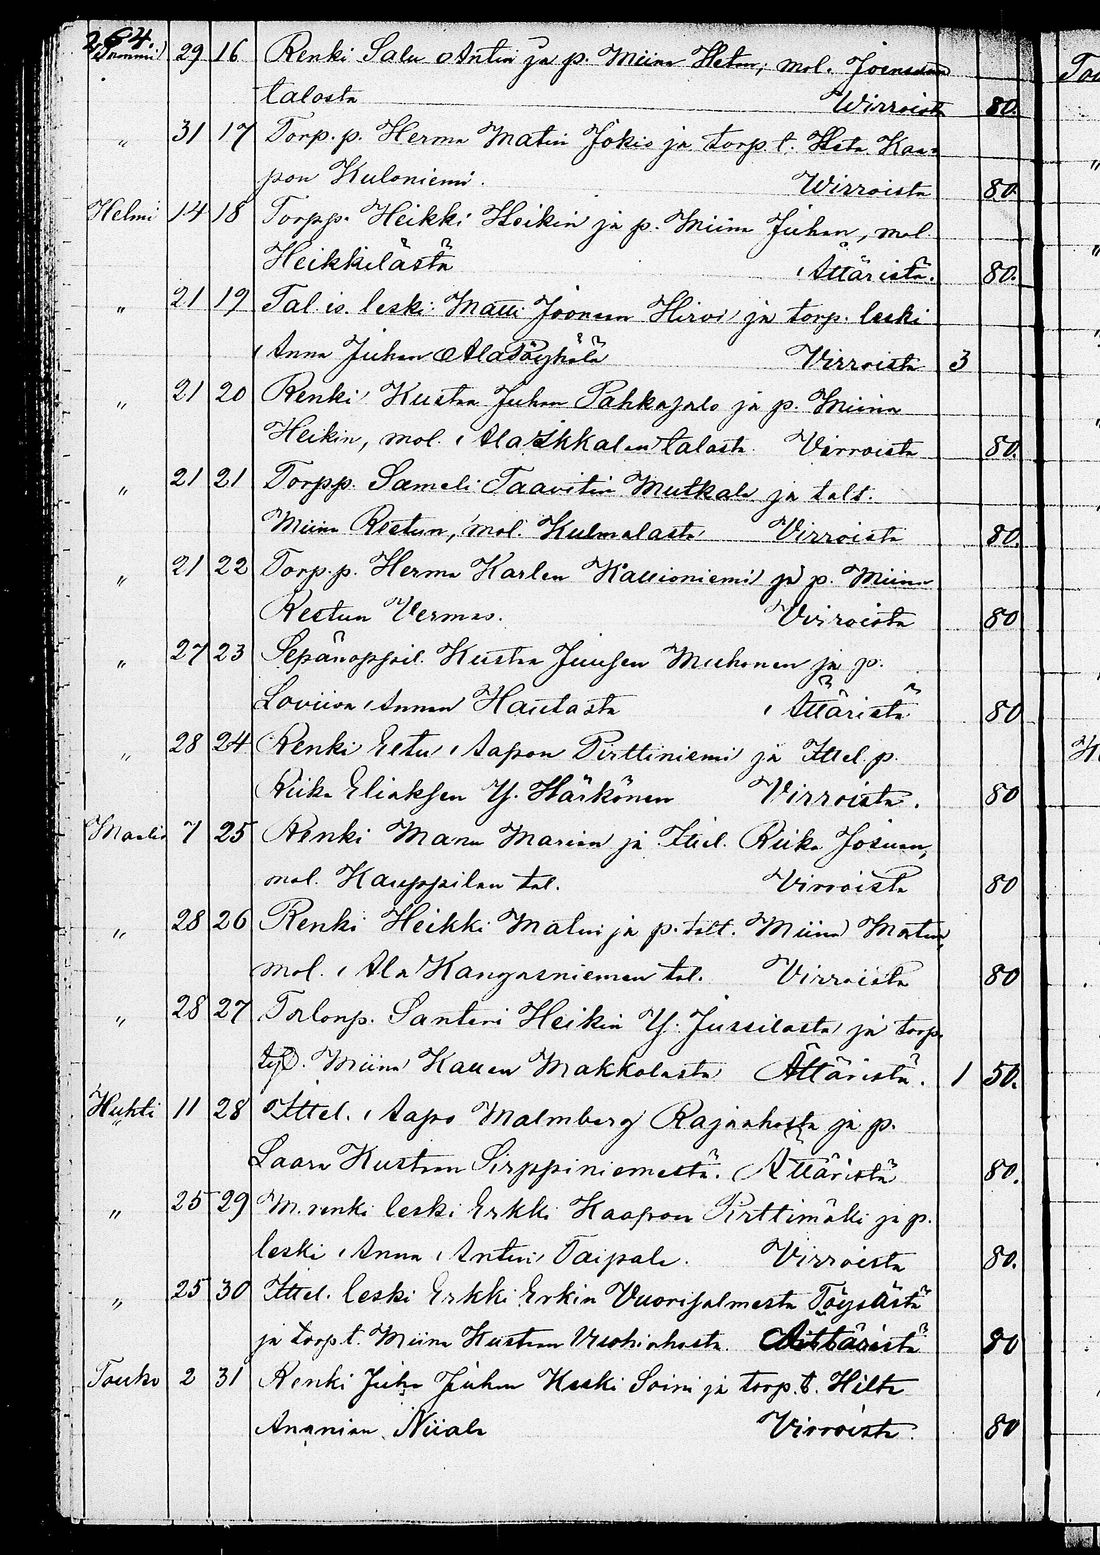 264.
Tammi 29 16 Renki Salu Antin ja p. Miina Hetan, mol. Joensuun
talosta Wirroista 80.
" 31 17 Torp. p. Herma Matin Jokio ja torp. t. Heta Kaa-
pon Kuloniemi. Wirroista 80.
Helmi 14 18 Torpp. Heikki Heikin ja p. Miina Juhan, mol.
Heikkilästä Ättäristä. 80.
" 21 19 Tal. is. leski Matti Joonaan Hirvi ja torp. leski
Anna Juhan AlaPöyhölä Virroista 3
" 21 20 Renki Kustaa Juhan Pahkajalo ja p. Miina
Heikin, mol. Ala Ikkalan talosta Virroista 80.
" 21 21 Torpp. Sameli Taavetin Mutkala ja talt.
Miina Restun, mol. Kulmalasta Virroista 80.
" 21 22 Torp. p. Herma Karlen Kallioniemi ja p. Miina
Restun Vermas. Virroista 80
" 27 23 Sepänoppil. Kustaa Juusen Muhonen ja p.
Loviisa Annan Hautasta Ättäristä 80
" 28 24 Renki Eetu Aapon Pirttiniemi ja Ittel. p.
Riika Eliaksen Y. Härkönen Virroista. 80
Maalis 7 25 Renki Manu Marian ja Ittel. Riika Josuan,
mol. Kauppilan tal. Virroista 80
" 28 26 Renki Heikki Matin ja p. talt. Miina Matin,
mol. Ala Kangasniemen tal. Virroista 80
" 28 27 Santeri Heikin Y. Jussilasta ja torp.
Miina Kallen Makkolasta Ättäristä. 1 50.
Huhti 11 28 Ittel. Aapo Malmberg Rajaahosta ja p.
" Laara Kustaan Sirppiniemestä. Ättäristä 80.
" 25 29 M. renki leski Erkki Kaapon Pirttimäki ja p.
leski Anna Antin Taipale. Virroista 80.
" 25 30 Ittel. leski Erkki Erkin Vuorisalmesta Töysästä
ja torp. t. Miina Kustaan Vuohiahosta Ättäristä 80
Touko 2 31 Renki Juha Juhan Keski Soini ja torp. t. Hilta
Ananian Niiala Virroista. 80